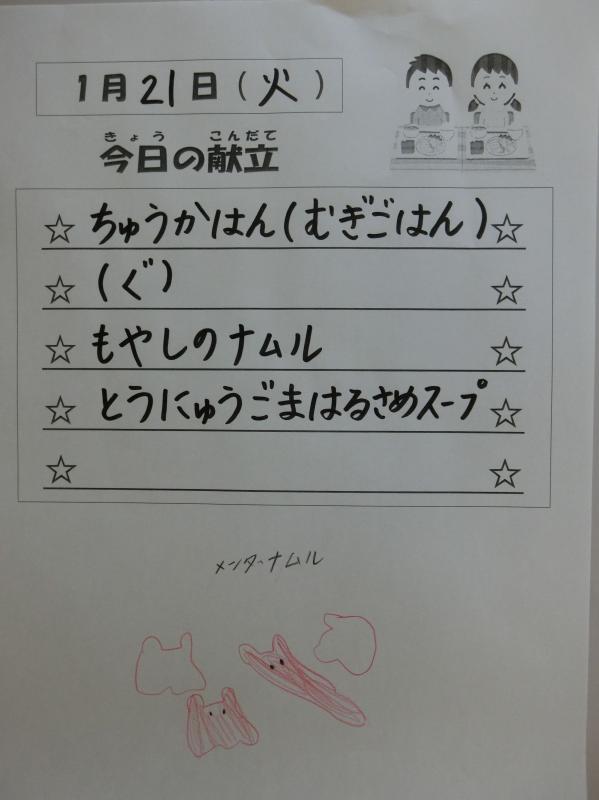 1月21日(火)
きょう こんだて
今日の献立
☆ ちゅうかはん(むぎごはん) ☆
☆ (ぐ) ☆
☆ もやしのナムル ☆
☆ とうにゅうごまはるさめスープ ☆
☆ ☆
メンターナムル